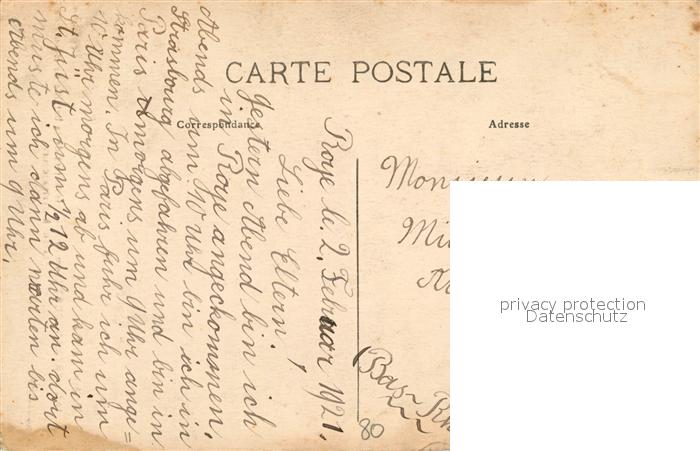 CARTE POSTALE
Correspondance
Adresse
Roye le. 2. Februar 1921.
Liebe Eltern!
Gestern Abend bin ich
in Roye angekommen.
Abends um 10 Uhr bin ich in
Strasbourg abgefahren und bin in
Paris morgens um 9 Uhr ange=
kommen. In Paris fuhr ich um
10 Uhr morgens ab und kam in
St. Just um 1/2 12 Uhr an. dort
musste ich dann warten bis
Abends um 9 Uhr,
Monsieur
Mi
(Bas Rh
80
privacy protection
Datenschutz